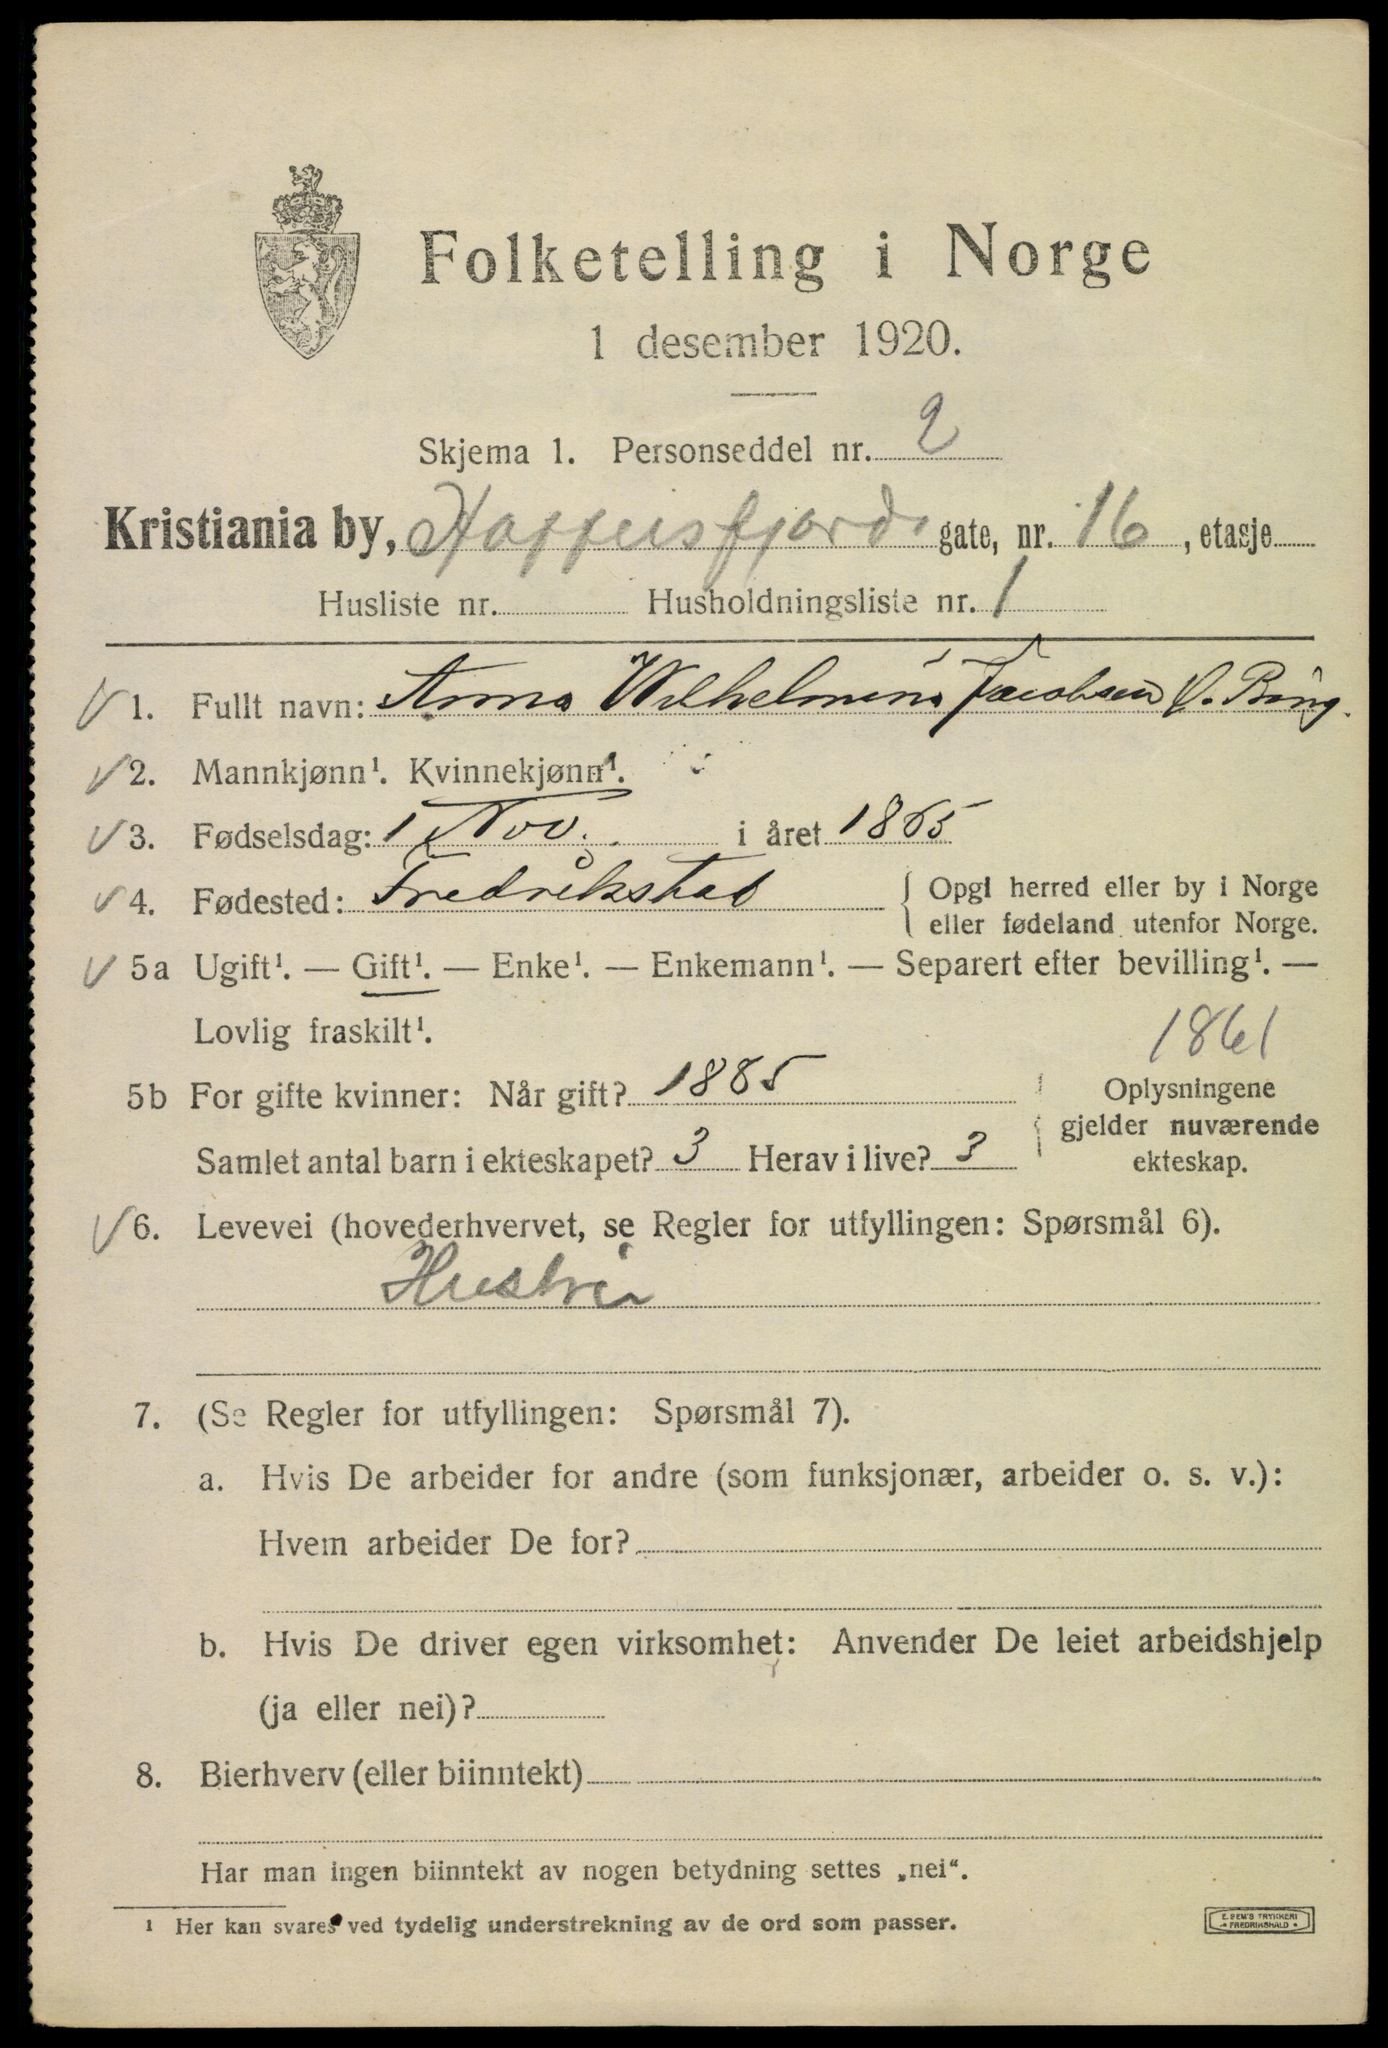 Folketelling i Norge
1 desember 1920.
Skjema 1. Personseddel nr. 2
Kristiania by, gate, nr. 16, etasje
Husliste nr. Husholdningsliste nr. 1
1. Fullt navn: Anna Wilhelmina Jacobsen f. Bing.
2. Mannkjønn¹. Kvinnekjønn¹.
3. Fødselsdag: 1 Nov. i året 1865
4. Fødested: Fredrikstad { Opgi herred eller by i Norge
eller fødeland utenfor Norge.
5a Ugift¹. — Gift¹. — Enke¹. — Enkemann¹. — Separert efter bevilling¹. —
Lovlig fraskilt¹.
1861
5b For gifte kvinner: Når gift? 1885
Samlet antal barn i ekteskapet? 3 Herav i live? 3
Oplysningene
gjelder nuværende
ekteskap.
6. Levevei (hovederhvervet, se Regler for utfyllingen: Spørsmål 6).
Hustru
7. (Se Regler for utfyllingen: Spørsmål 7).
a. Hvis De arbeider for andre (som funksjonær, arbeider o. s. v.):
Hvem arbeider De for?
b. Hvis De driver egen virksomhet: Anvender De leiet arbeidshjelp
(ja eller nei)?
8. Bierhverv (eller biinntekt)
Har man ingen biinntekt av nogen betydning settes „nei“.
¹ Her kan svares ved tydelig understrekning av de ord som passer.
E. SEM'S TRYKKERI
FREDRIKSHALD